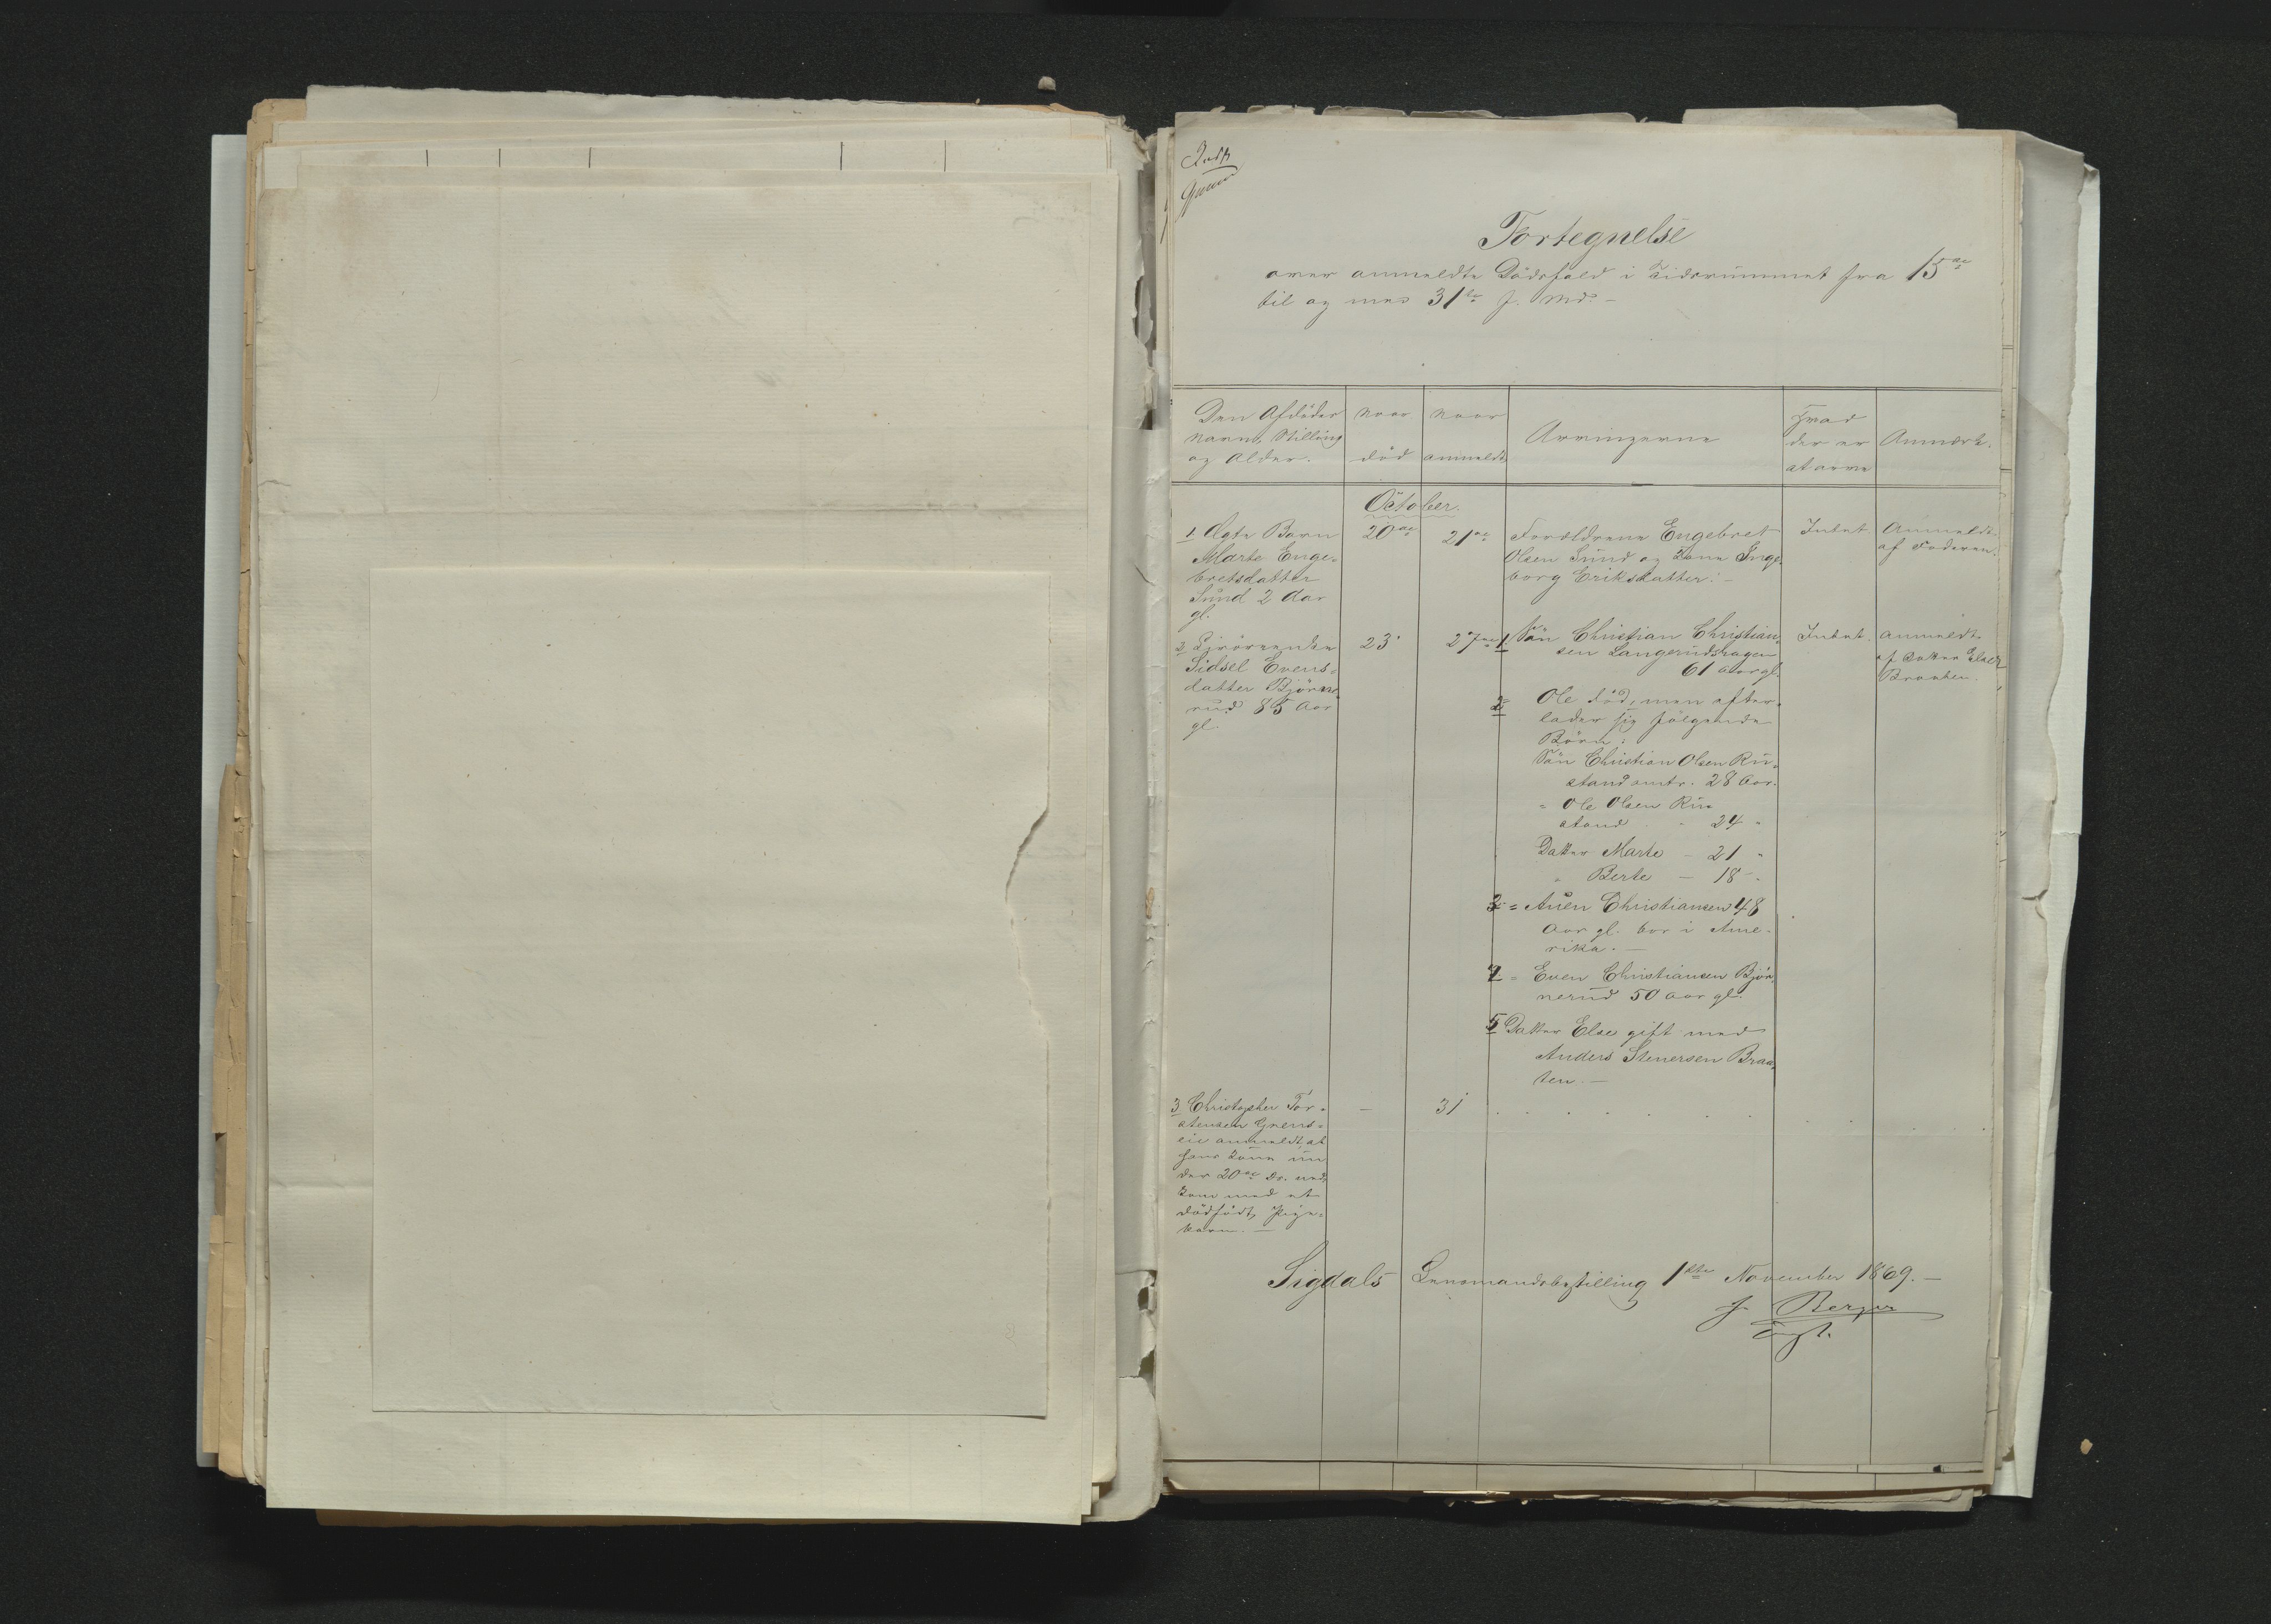 Fortegnelse
over anmeldte Dödsfald i Tidsrummet fra 15de
til og med 31te f. Md. -
Den Afdödes
Navn, Stilling
og Alder.
Naar
död
Naar
anmeldt
Arvingerne
Hvad
der er
at arve
Anmærk.
October.
1 Ægte Barn
Marte Enge-
bretsdatter
Sund 2 Aar
gl.
20de
21de
Forældrene Engebret
Olsen Sund og Kone Inge-
borg Eriksdatter. -
Intet
Anmeldt
af Faderen.
2
Sidsel Evens-
datter Björne-
rud 85 Aar
gl.
23
27de
1 Sön Christian Christian-
sen Langerudshagen
61 Aar gl.
Intet.
Anmeldt
af Datter Else
Braaten.
2 Ole död, men efter-
lader sig fölgende
Börn:
Sön Christian Olsen Ru-
stand omtr. 28 Aar.
" Ole Olsen Ru-
stand " 24 "
Datter Marte - 21 "
" Berte - 18 -
3 = Auen Christiansen 48
Aar gl. bor i Ame-
rika. -
4 = Even Christiansen Björ-
nerud 50 Aar gl.
5 Datter Else gift med
Anders Stenersen Braa-
ten. -
3 Christopher Tor-
stensen Grens-
eie anmeldt, at
hans Kone un-
der 20de ds. ned-
kom med et
dödfödt Pige-
barn. -
-
31
Sigdals Lensmandsbestilling 1ste November 1869. -
J. Berger